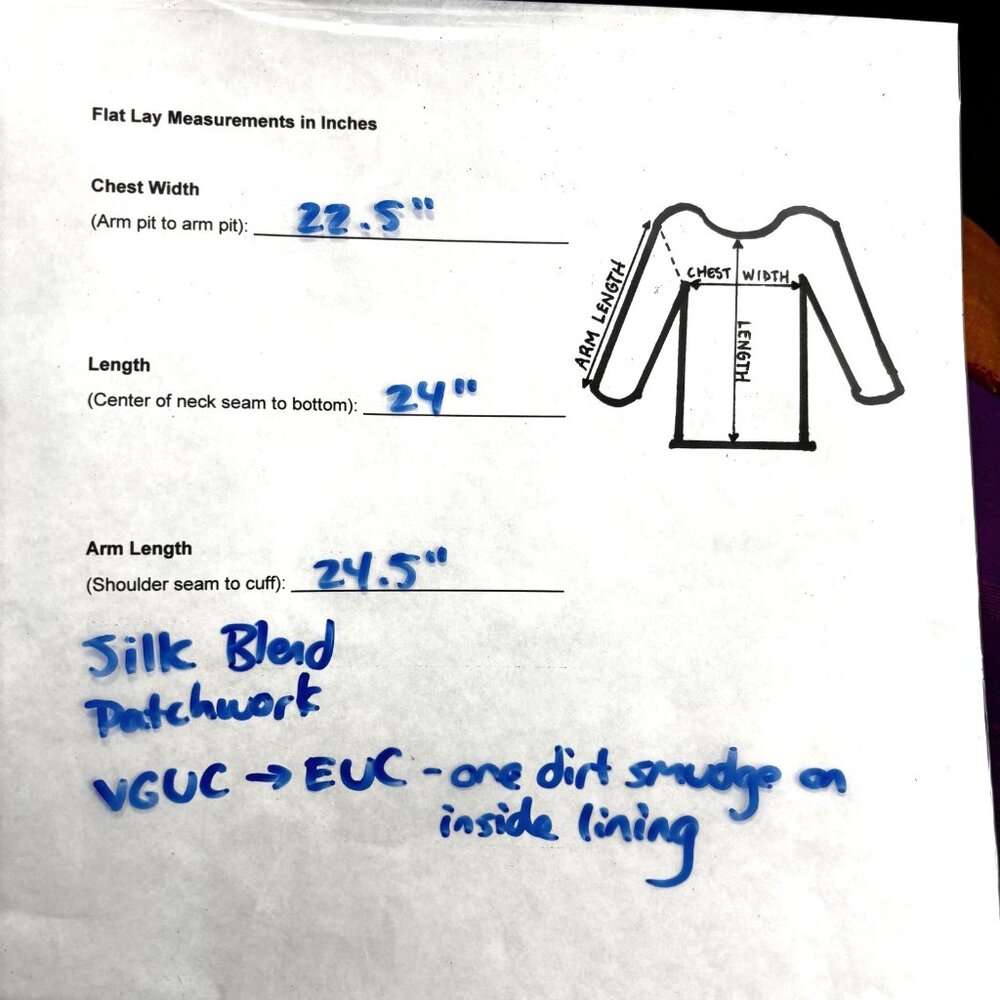 Flat Lay Measurements in Inches
Chest Width
(Arm pit to arm pit): 22.5"
CHEST WIDTH
ARM LENGTH
LENGTH
Length
(Center of neck seam to bottom): 24"
Arm Length
(Shoulder seam to cuff): 24.5"
Silk Blend
Patchwork
VGUC → EUC - one dirt smudge on
inside lining